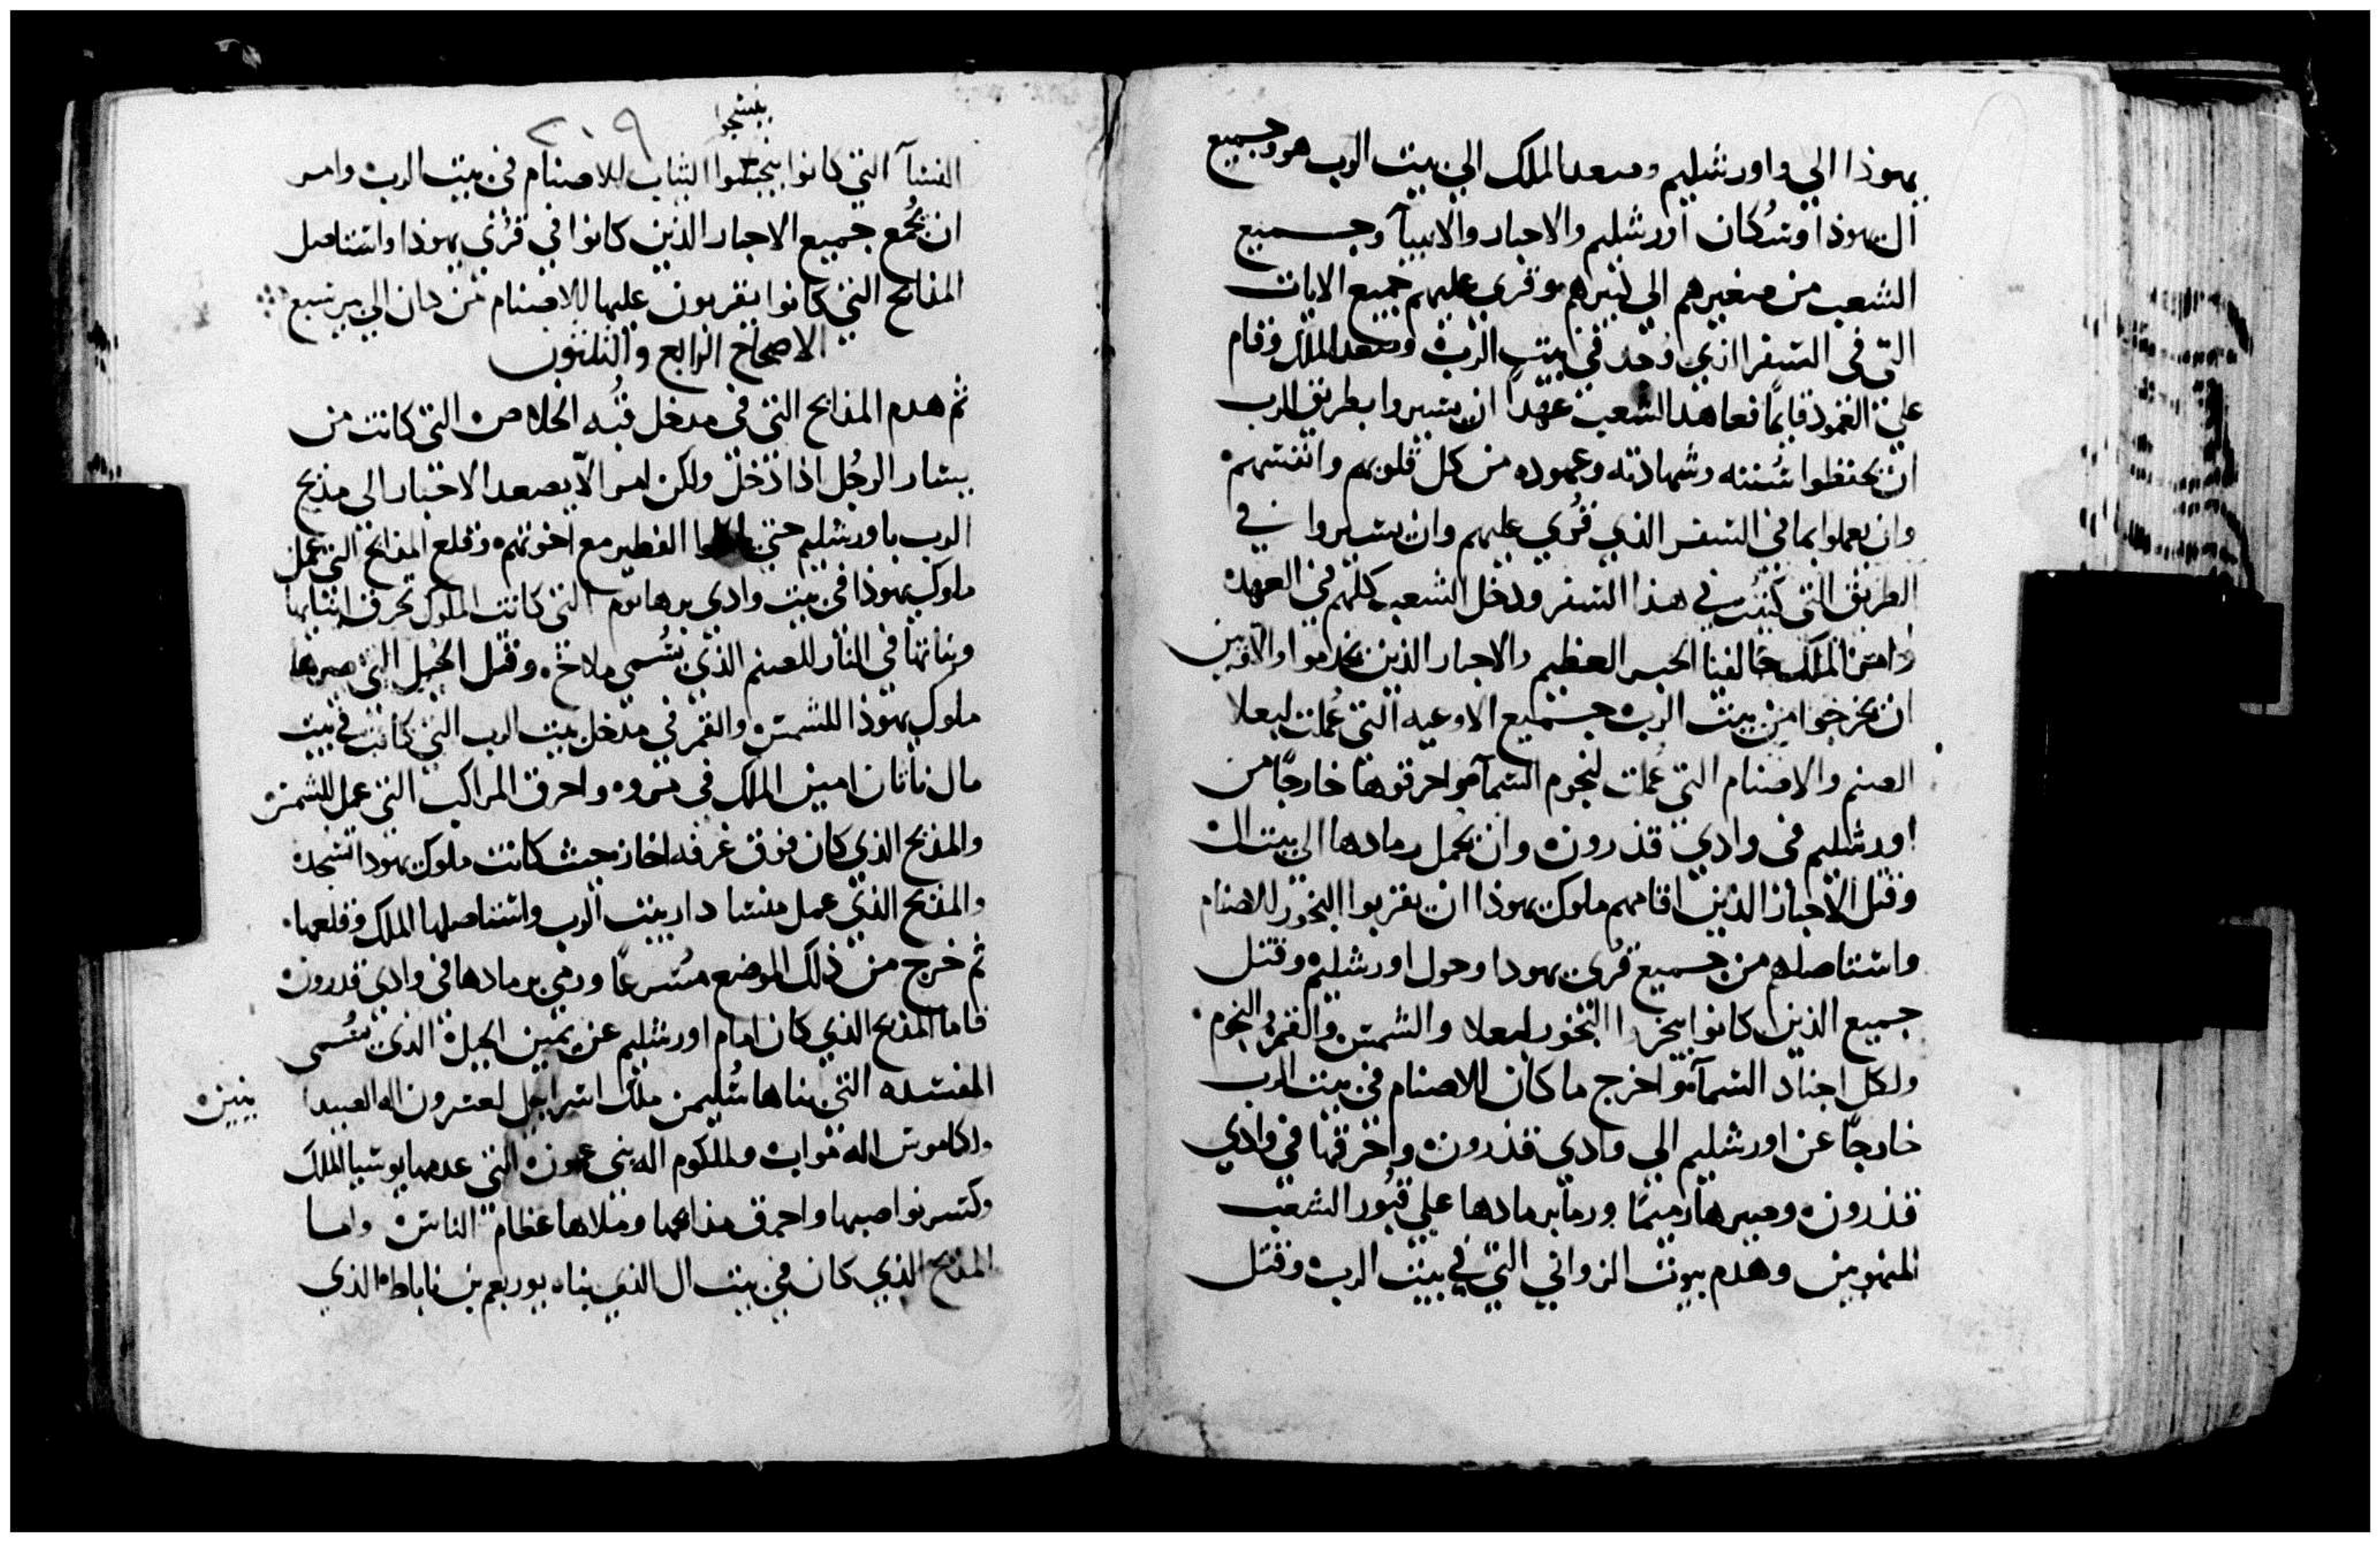 يهوذا الي واورشليم وصعد الملك الي بيت الرب هو وجميع
ال يهوذا وسُكان اورشليم والاحبار والانبيآ وجميع
الشعب من صغيرهم الي كبيرهم وقري عليهم جميع الايات
التي في السفر الذي وُجد في بيت الرب وصعد الملك وقام
علي العمود قايمًا فعاهد الشعب عهدًا ان يسيروا بطريق الرب
ان يحفظوا سُننه وشهادته وعهوده من كل قلوبهم وانفسهم
وان يعملوا بما في السفر الذي قُري عليهم وان يسيروا في
الطريق التي كُتبت في هذا السفر ودخل الشعب كلهم في العهد
وامر الملك حالفنا الحبر العظيم والاحبار الذين يخدموا والامين
ان يخرجوا من بيت الرب جميع الاوعيه التي عُملت لبعلا
الصنم والاصنام التي عُملت لنجوم السمآ واحرقوها خارجًا من
اورشليم في وادي قدرون وان يحمل رمادها الي بيت ال
وقتل الاحبار الذين اقامهم ملوك يهوذا ان يقربوا البخور للاصنام
واستاصلهم من جميع قُري يهودا وحول اورشليم وقتل
جميع الذين كانوا يبخروا البخور لبعلا والشمس والقمر والنجوم
ولكل اجناد السمآ واخرج ما كان للاصنام في بيت الرب
خارجًا عن اورشليم الي وادي قدرون واحرقها في وادي
قدرون وصيرها رميمًا ورما برمادها علي قبُور الشعب
وهدم بيوت الزواني التي في بيت الرب وقتل
٢٠٩
النسآ التي كانوا الثياب للاصنام في بيت الرب وامر
ان يجُمع جميع الاحبار الذين كانوا في قري يهوذا واستاصل
المذابح التي كانوا يقربون عليها للاصنام من دان الي بير سبع
الاصحاح الرابع والثلثون
ثم هدم المذابح التي في مدخل قبُه الخلاص التي كانت من
يسار الرجُل اذا دخل ولكن امر الّا يصعد الاحبار الي مذبح
الرب باورشليم حتي الفطير مع اخوتهم وقلع المذابح التي عمل
ملوك يهوذا في بيت وادي التي كانت الملوك تحرق ابنايها
وبناتها في النار للصنم الذي يسُمي ملاخ وقتل الخيل التي صيرها
ملوك يهوذا للشمس والقمر في مدخل بيت الرب التي كانت في بيت
مال ناثان امين الملك في واحرق المراكب التي عمل للشمس
والمذبح الذي كان فوق غرفه احاز حيث كانت ملوك يهودا تسجد
والمذبح الذي عمل منسا دار بيت الرب واستاصلها الملك وقلعها
ثم خرج من ذلك الموضع مسُرعًا ورمي برمادها في وادي قدرون
فاما المذبح الذي كان امام اورشليم عن يمين الجبل الذي يسُمي
المفسده التي بناها سُليمن ملك اسراييل لعسرون اله العبيدا
ولكاموس اله مواب وملكوم اله بني عمون التي عدمها يوسيا الملك
وكسر نواصبها واحرق مذابحها وملاها عظام الناس واما
المذبح الذي كان في بيت ال الذي بناه يوربعم بن ناباط الذي